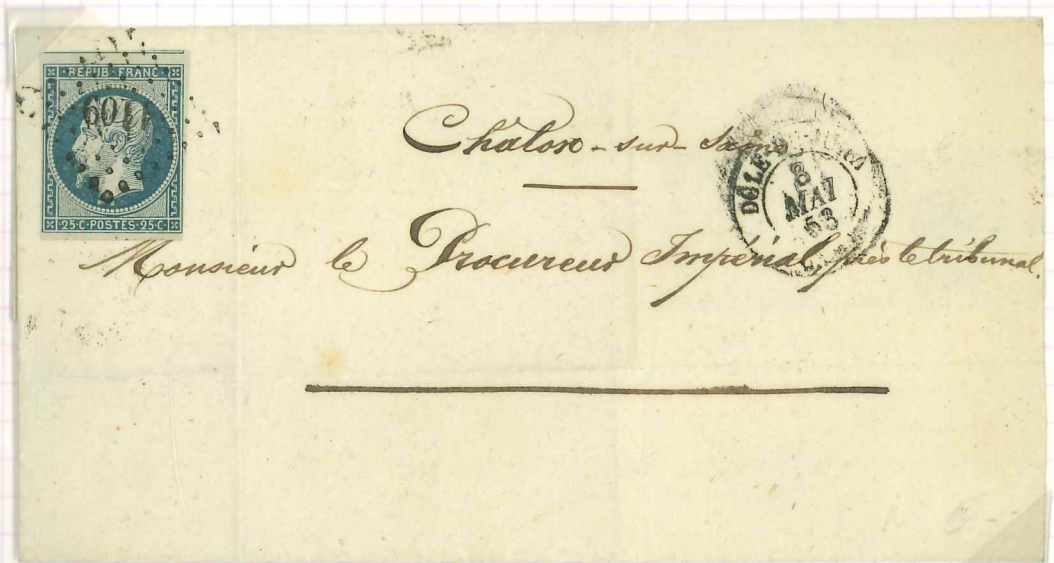 REPUB FRANC
1109
25·C·POSTES·25·C
Châlon-sur-Saône
DOLE-DU-JURA
8
MAI
53
Monsieur le Procureur Impérial près le tribunal.